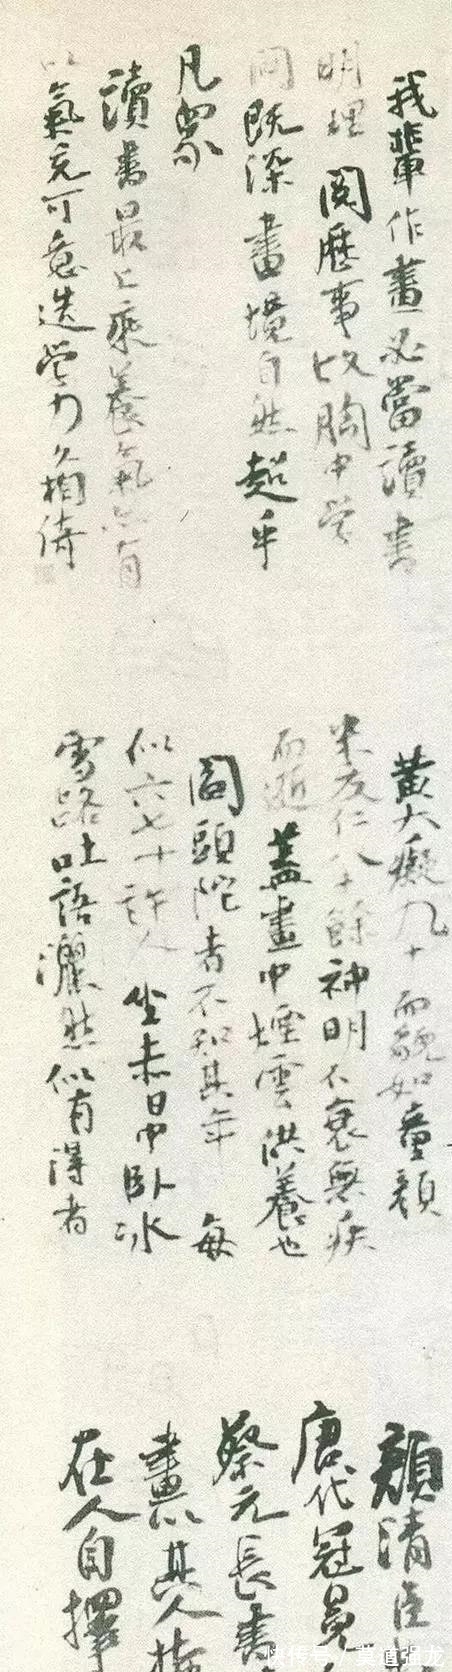 我輩作畫必當讀書
明理閱歷事故胸中學
問既深畫境自然超乎
凡眾
讀書最上乘養氣亦有
以氣充可意造學力久相倚
黃大癡九十而貌如童顏
米友仁八十餘神明不衰無疾
而逝蓋畫中煙雲供養也
閻頭陀者不知其年每
似六七十許人坐赤日中臥冰
雪路吐語灑然似有得者
顏清臣
唐代冠冕
蔡元長書
畫以其人
在人自擇
快传号/莫道强龙